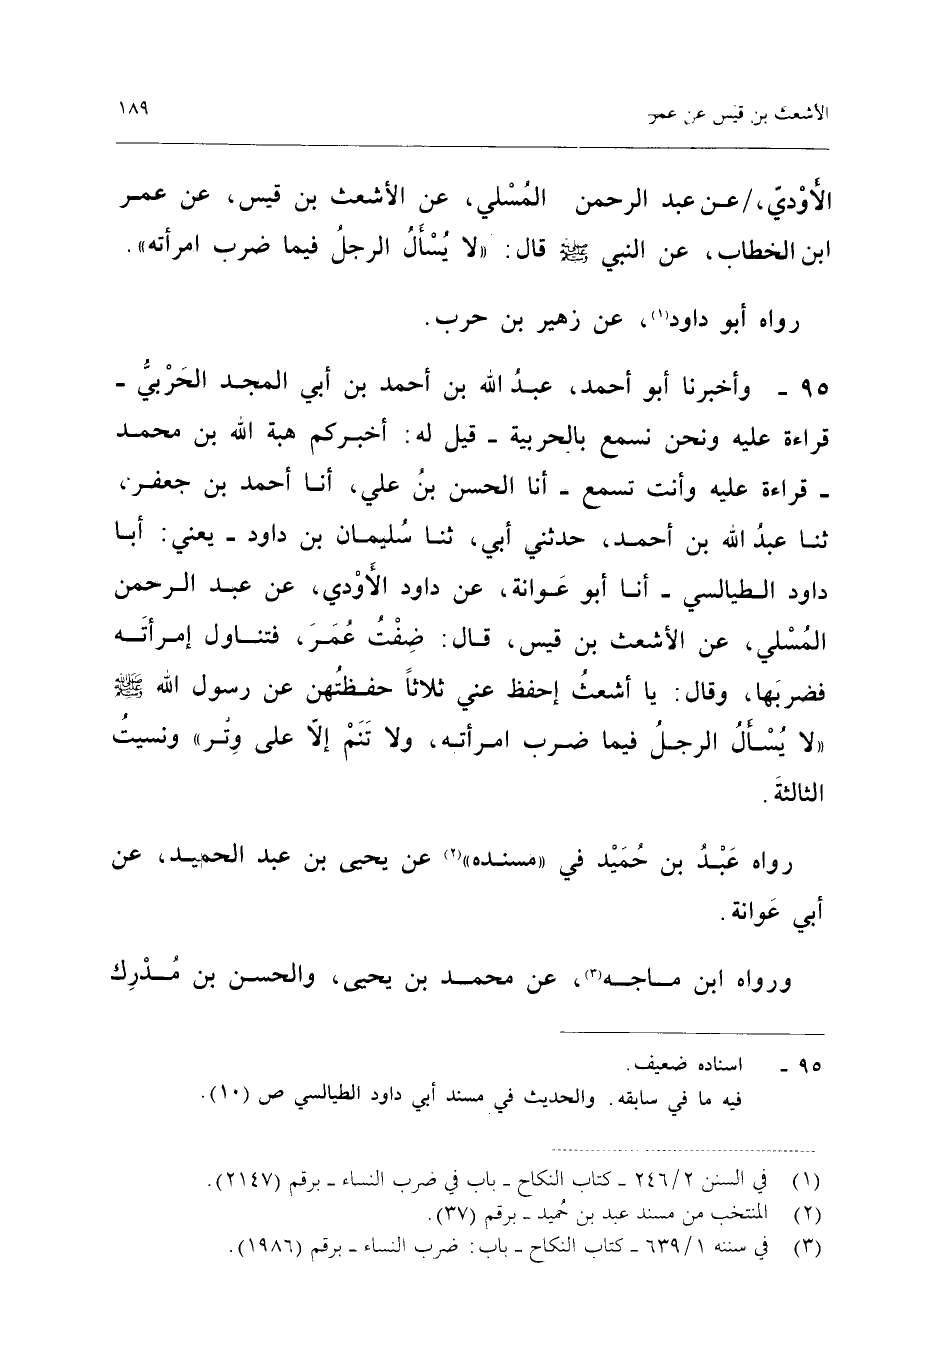 الأشعث بن قيس عن عمر ١٨٩
الأَوْديّ،/عـن عبد الرحمن المُسْلي، عن الأشعث بن قيس، عن عمـر
ابن الخطاب، عن النبي ﷺ قال: «لا يُسْأَلُ الرجلُ فيما ضرب امرأته».
رواه أبو داود(١)، عن زهير بن حرب.
٩٥ - وأخبرنا أبو أحمد، عبـدُ الله بن أحمد بن أبي المجـد الحَرْبيُّ -
قراءة عليه ونحن نسمع بالحربية - قيل له: أخبـركم هبة الله بن محمـد
- قراءة عليه وأنت تسمع - أنا الحسن بنُ علي، أنـا أحمد بن جعفـر،
ثنـا عبدُ الله بن أحمـد، حدثني أبي، ثنـا سُليمـان بن داود - يعني: أبـا
داود الـطيالسي - أنـا أبو عَـوانة، عن داود الأَوْدي، عن عبـد الـرحمن
المُسْلي، عن الأشعـث بن قيس، قـال: ضِفْتُ عُمَـرَ، فتنـاول إمـرأتَـه
فضربَها، وقال: يا أشعثُ إحفظ عني ثلاثاً حفـظتُهن عن رسول الله ﷺ
«لا يُسْـأَلُ الرجـلُ فيما ضـرب امـرأتـه، ولا تَنَمْ إلاّ على وِتْـر» ونسيتُ
الثالثةَ.
رواه عَبْـدُ بن حُمَيْد في «مسنـده»(٢) عن يحيى بن عبد الحميـد، عن
أبي عَوانة.
ورواه ابن مـاجـه(٣)، عن محمـد بن يحيى، والحسن بن مُـدْرِك
٩٥ - اسناده ضعيف.
فيه ما في سابقه. والحديث في مسند أبي داود الطيالسي ص (١٠).
(١) في السنن ٢/ ٢٤٦ - كتاب النكاح - باب في ضرب النساء - برقم (٢١٤٧).
(٢) المنتخب من مسند عبد بن حُميد - برقم (٣٧).
(٣) في سننه ١/ ٦٣٩ - كتاب النكاح - باب: ضرب النساء - برقم (١٩٨٦).